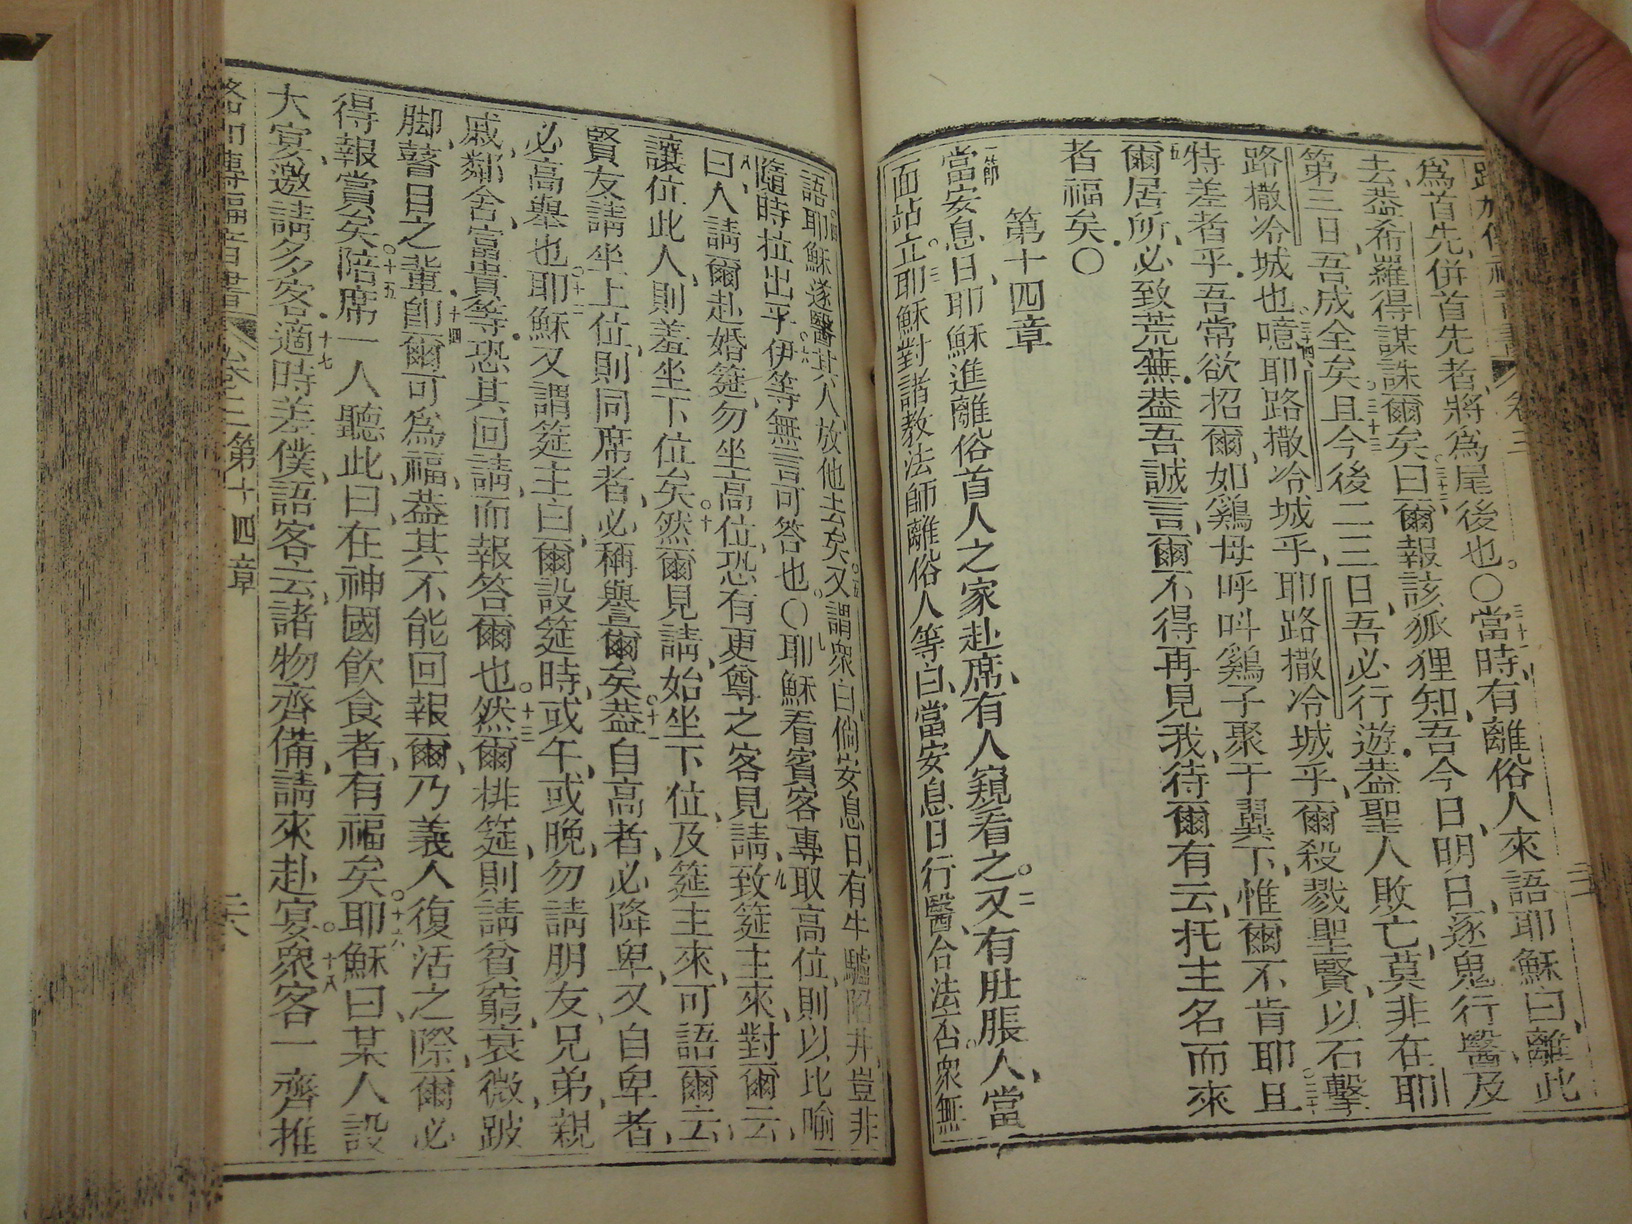 為首先、併首先者、將為尾後也。〇當時、有離俗人來語耶穌曰、離此
去、葢希羅得謀誅爾矣。曰、爾報該狐狸知、吾今日、明日、逐鬼行醫、及
第三日、吾成全矣。且今後二三日、吾必行遊、葢聖人敗亡、莫非在耶
路撒冷城也。噫耶路撒冷城乎、耶路撒冷城乎、爾殺戮聖賢、以石擊
特差者乎。吾常欲招爾、如鷄母呼叫鷄子聚于翼下、惟爾不肯耶。且
爾居所、必致荒蕪。葢吾誠言、爾不得再見我、待爾有云、托主名而來
者福矣。〇
第十四章
一節 當安息日、耶穌進離俗首人之家赴席、有人窺看之。二又有肚脹人、當
面站立。三耶穌對諸教法師離俗人等曰、當安息日行醫、合法否。衆無
語。耶穌遂醫其人、放他去矣。五又謂衆曰、倘安息日、有牛驢陷井、豈非
隨時拉出乎。六伊等無言可答也。〇耶穌看賓客專取高位、則以比喻
曰、八人請爾赴婚筵、勿坐高位、恐有更尊之客見請、九致筵主來、對爾云、
讓位此人、則羞坐下位矣。十然爾見請、始坐下位、及筵主來、可語爾云、
賢友請坐上位、則同席者、必稱譽爾矣。十一葢自高者、必降卑、又自卑者、
必高舉也。十二耶穌又謂筵主曰、爾設筵時、或午、或晚、勿請朋友、兄弟、親
戚、鄰舍、富貴等、恐其回請、而報答爾也。十三然爾排筵、則請貧窮、衰微、跛
脚、瞽目之輩。十四卽爾可為福、葢其不能回報爾、乃義人復活之際、爾必
得報賞矣。十五陪席一人聽此、曰、在神國飲食者、有福矣。十六耶穌曰、某人設
大宴、邀請多客。十七適時差僕、語客云、諸物齊備、請來赴宴。十八衆客一齊推
路加傳福音書 卷三 第十四章 二六